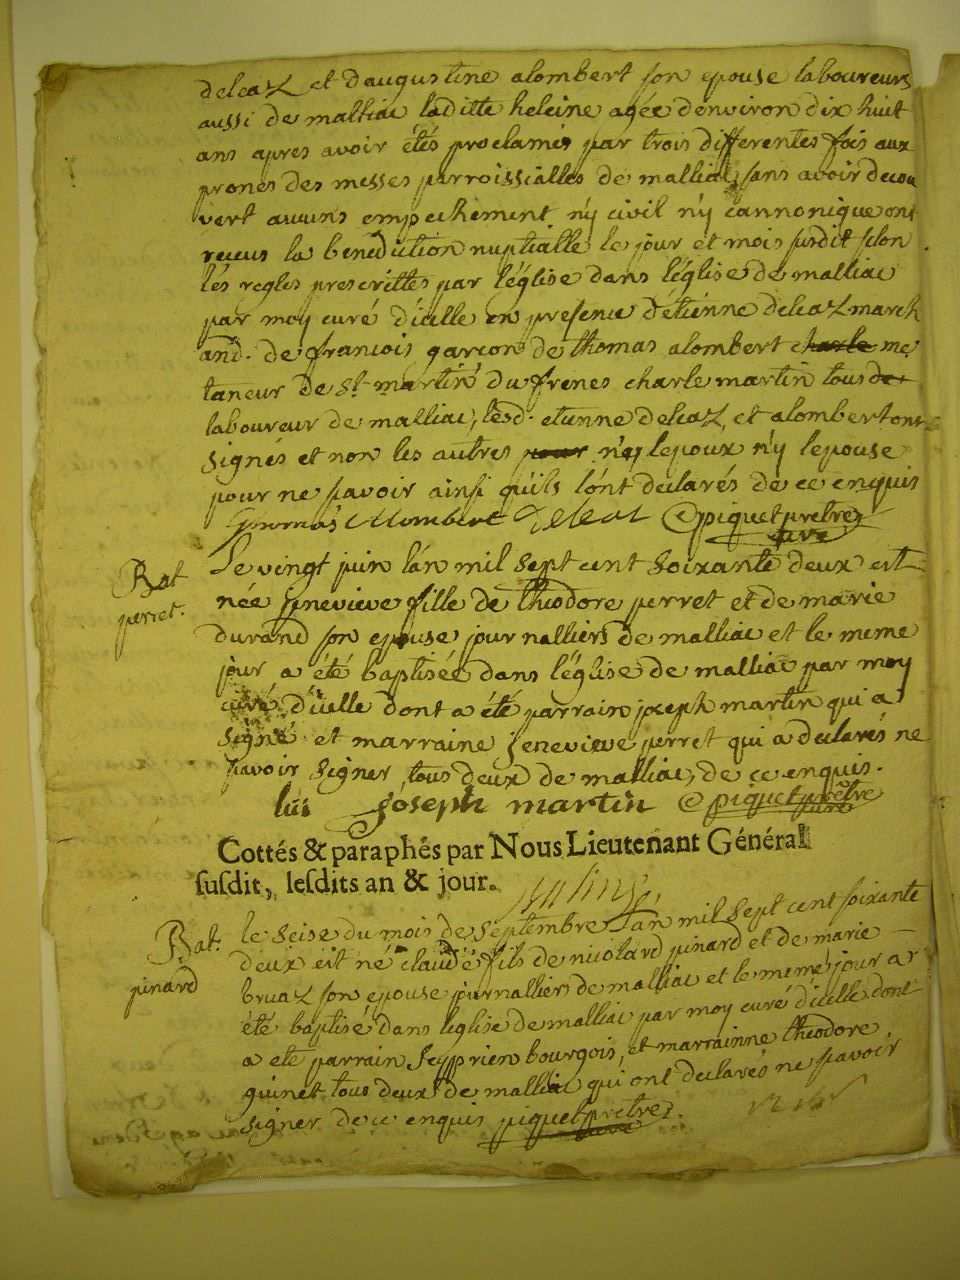 deleaz et daugustine alombert son epouse laboureurs
aussi de malliac laditte heleine agée denviron dix huit
ans apres avoir étés proclamés par trois differentes fois aux
prones des messes parroissialles de malliac sans avoir decou
vert aucuns empechement n'y civil n'y cannonique ont
recus la benediction nuptialle le jour et mois susdit selon
lés regles prescrittes par l'église dans l'église de malliac
par moy curé d'icelle en presence d'étienne deleaz march
and. de francois garçon de thomas alombert charle me
taneur de St. martin du frenes charle martin tous de
laboureur de malliac, lesd. etienne deleaz, et alombert ont
signés et non les autres pour n'y lepoux n'y lepouse
pour ne savoir ainsi qu'ils lónt declarés de ce enquis
Thomas Alombert Deleat piquet pretre
curé
Bat
perret.
Le vingt juin lán mil sept cent soixante deux est
née Genevieve fille de theodore perret et de marie
durand son epouse journalliers de malliac et le meme
jour a été baptisée dans l'église de malliac par moy
curé d'icelle dont a été parrain joseph martin qui a
signé et marraine genevieve perret qui a declarés ne
savoir signer, tous deux de malliac, de ce enquis.
lui joseph martin piquet prêtre
curé
Cottés & paraphés par Nous Lieutenant Général
susdit, lesdits an & jour.
Bat.
pinard
le seise du mois de septembre lán mil sept cent soixante
deux est né claude fils de nicolard pinard et de marie
bruaz son epouse journalliers de malliac et le meme jour a
été baptisé dans l'eglise de malliac par moy curé d'icelle dont
a eté parrain seyprien bourgois, et marrainne theodore
guinet tous deux de malliac qui ont declarés ne savoir
signer de ce enquis piquet prêtre.
curé